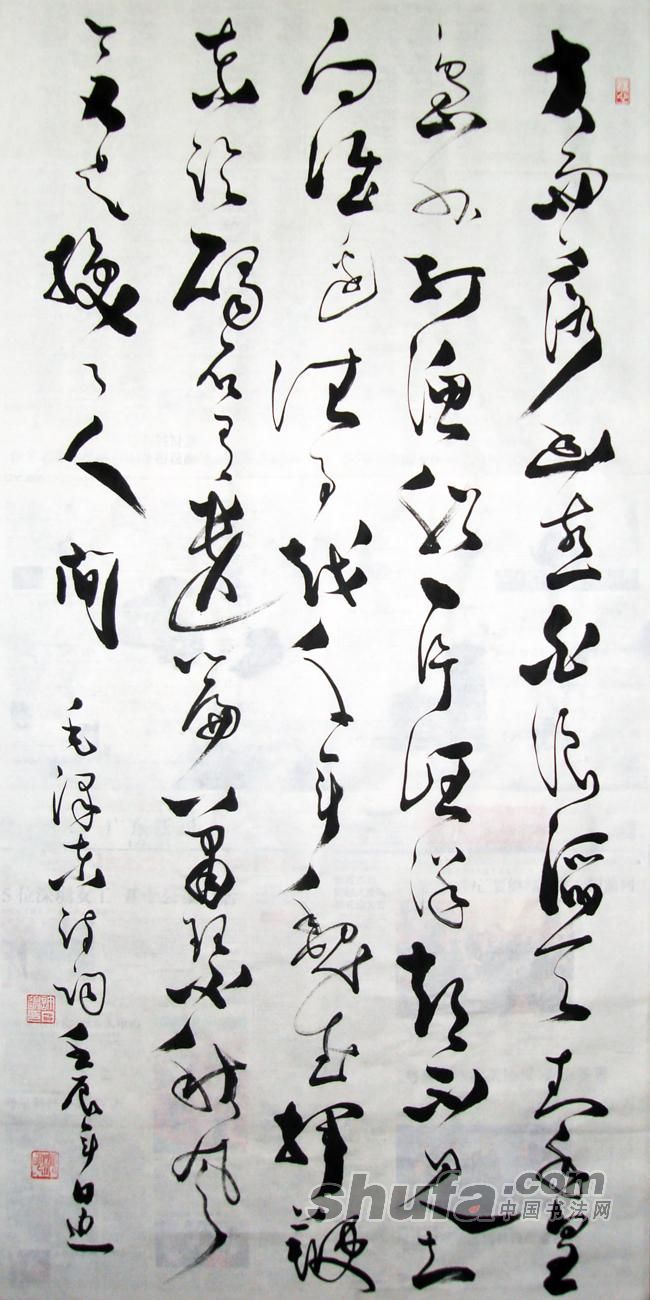 大雨落幽燕白浪滔天秦皇
岛外打渔船一片汪洋都不见知
向谁边往事越千年魏武挥鞭
东临碣石有遗篇萧瑟秋风
今又是换了人间
毛泽东诗词 壬辰年
shufa.com
中国书法网